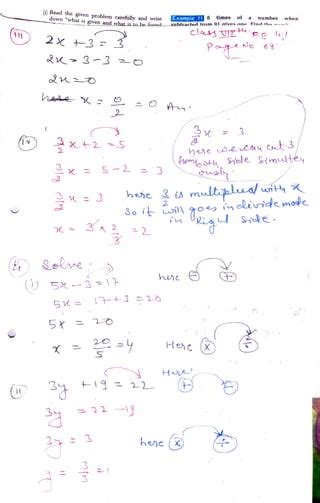 (i) Read the given problem carefully and write
down "what is given and what is to be found
Example 11 8 times of a number when
subtracted from 91 gives one. Find the
Class VIIth. EX 4.1
Page No 63
(iii) 2x + 3 = 3
2x = 3 - 3 = 0
2x = 0
x = 0/2 = 0 An.
(iv) 3/2 x + 2 = 5
3/2 x = 5 - 2 = 3
3/2 x = 3
x = 3 × 2/3 = 2
3/2 x = 3
here we can cut 3
from both side simulten
ously.
here 3/2 is multiplied with x
so it will goes in divide mode
in Right side.
Solve:
(i) 5x - 3 = 17
here ⊖ ⊕
5x = 17 + 3 = 20
5x = 20
x = 20/5 = 4
Here ⊗ ÷
(ii) 3y + 19 = 22
Here
+ −
3y = 22 - 19
3y = 3
here ⊗ ÷
y = 3/3 = 1